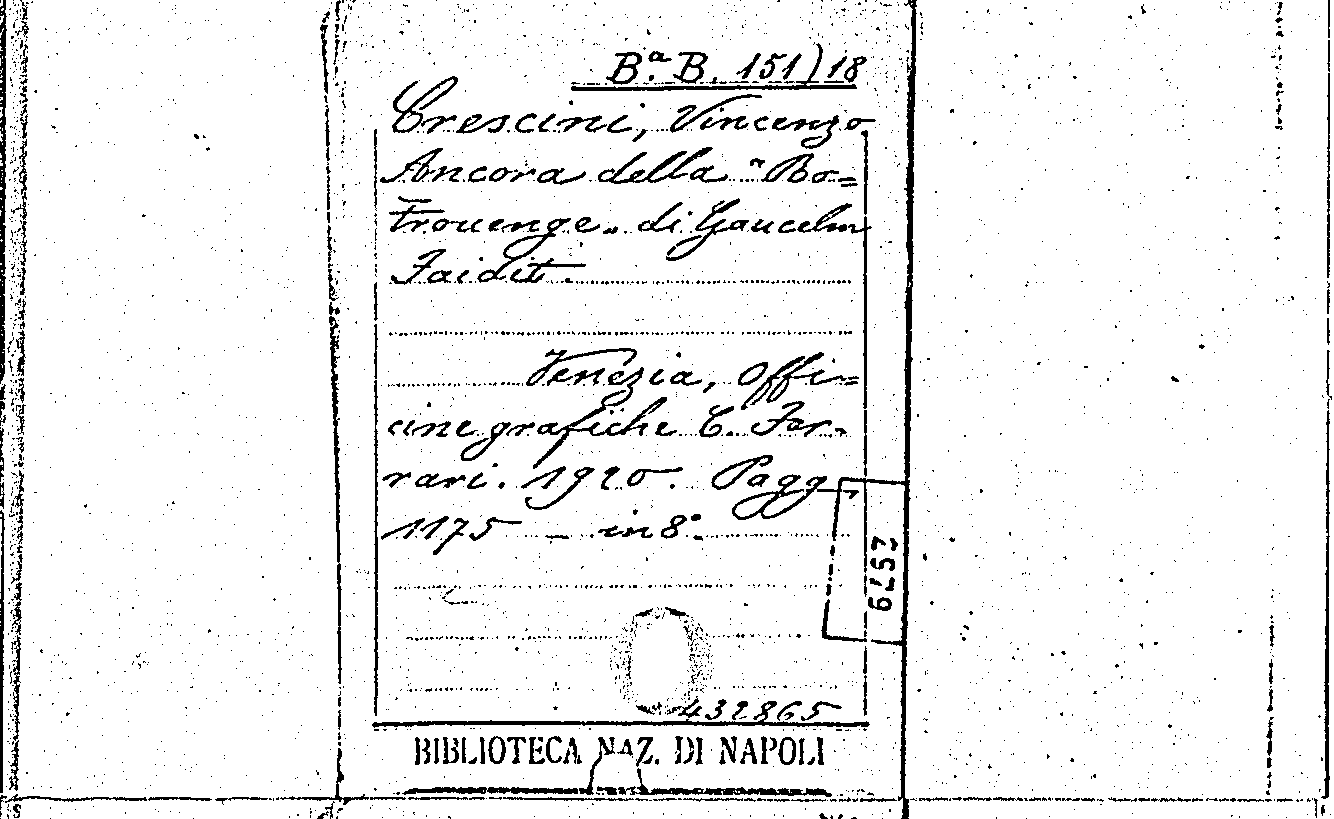 Bª. B. 151)18
Crescini, Vincenzo
Ancora della "Bo=
trouenge„ di Gaucelm
Faidit.
Venezia, Offi=
cine grafiche C. Fer-
rari. 1920. Pagg.
1175 — in 8º.
2579
432865
BIBLIOTECA NAZ. DI NAPOLI